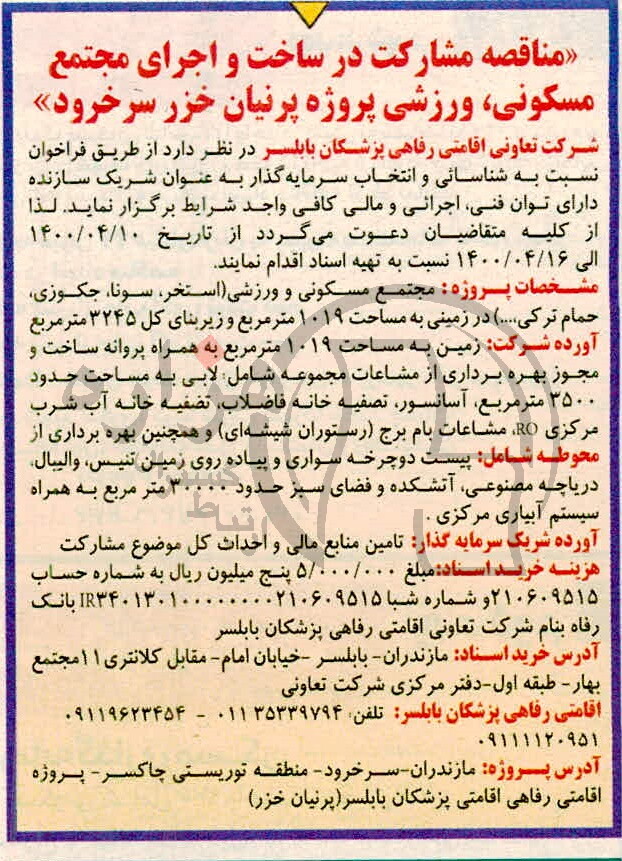 «مناقصه مشارکت در ساخت و اجرای مجتمع
مسکونی، ورزشی پروژه پرنیان خزر سرخرود»
شرکت تعاونی اقامتی رفاهی پزشکان بابلسر در نظر دارد از طریق فراخوان
نسبت به شناسائی و انتخاب سرمایه‌گذار به عنوان شریک سازنده
دارای توان فنی، اجرائی و مالی کافی واجد شرایط برگزار نماید. لذا
از کلیه متقاضیان دعوت می‌گردد از تاریخ ۱۴۰۰/۰۴/۱۰
الی ۱۴۰۰/۰۴/۱۶ نسبت به تهیه اسناد اقدام نمایند.
مشخصات پروژه: مجتمع مسکونی و ورزشی(استخر، سونا، جکوزی،
حمام ترکی....) در زمینی به مساحت ۱۰۱۹ مترمربع و زیربنای کل ۳۲۴۵ مترمربع
آورده شرکت: زمین به مساحت ۱۰۱۹ مترمربع به همراه پروانه ساخت و
مجوز بهره برداری از مشاعات مجموعه شامل: لابی به مساحت حدود
۳۵۰۰ مترمربع، آسانسور، تصفیه خانه فاضلاب، تضفیه خانه آب شرب
مرکزی RO، مشاعات بام برج (رستوران شیشه‌ای) و همچنین بهره برداری از
محوطه شامل: پیست دوچرخه سواری و پیاده روی زمین تنیس، والیبال،
دریاچه مصنوعی، آتشکده و فضای سبز حدود ۳۰۰۰۰ متر مربع به همراه
سیستم آبیاری مرکزی .
آورده شریک سرمایه گذار: تامین منابع مالی و احداث کل موضوع مشارکت
هزینه خرید اسناد: مبلغ ۵/۰۰۰/۰۰۰ پنج میلیون ریال به شماره حساب
۲۱۰۶۰۹۵۱۵ و شماره شبا IR۳۴۰۱۳۰۱۰۰۰۰۰۰۰۰۰۲۱۰۶۰۹۵۱۵ بانک
رفاه بنام شرکت تعاونی اقامتی رفاهی پزشکان بابلسر
آدرس خرید اسناد: مازندران- بابلسر -خیابان امام- مقابل کلانتری ۱۱مجتمع
بهار- طبقه اول-دفتر مرکزی شرکت تعاونی
اقامتی رفاهی پزشکان بابلسر: تلفن: ۳۵۳۳۹۷۹۴ ۰۱۱ - ۰۹۱۱۹۶۲۳۴۵۴
۰۹۱۱۱۱۲۰۹۵۱
آدرس پروژه: مازندران-سرخرود- منطقه توریستی چاکسر- پروژه
اقامتی رفاهی اقامتی پزشکان بابلسر(پرنیان خزر)